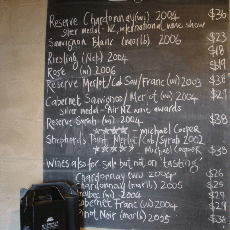 Reserve Chardonnay (wi) 2004 $36
silver medal - NZ international wine show
Sauvignon Blanc (marlb) 2006 $23
Riesling (Nels) 2004 $18
Rosé (wi) 2006 $19
Reserve Merlot/Cab Sauv/Franc (wi) 2003 $38
Cabernet Sauvignon/Merlot (wi) 2004 $27
silver medal - Air NZ wine awards
Reserve Syrah (wi) 2004 $38
- Michael Cooper
Shepherds Point Merlot/Cab/Syrah 2002
Michael Cooper $38
Wines also for sale but not on 'tasting'
Chardonnay (wi) 2004 $26
Chardonnay (marlb) 2005 $25
(wi) 2004 $29
Cabernet Franc (wi) 2004 $29
Pinot Noir (marlb) 2005 $38